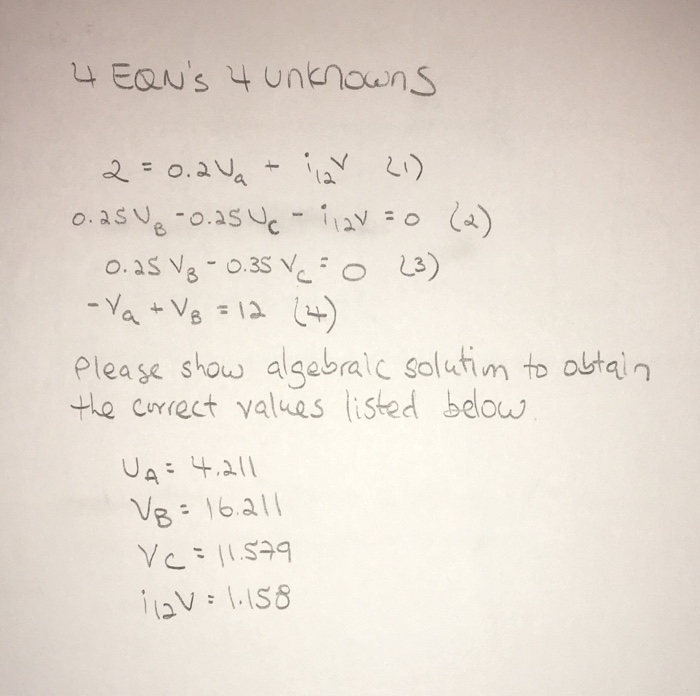 4 EQN's 4 unknowns
2 = 0.2Va + i12V (1)
0.25VB - 0.25VC - i12V = 0 (2)
0.25 VB - 0.35 VC = 0 (3)
-Va + VB = 12 (4)
Please show algebraic solution to obtain
the correct values listed below.
VA = 4.211
VB = 16.211
VC = 11.579
i12V = 1.158